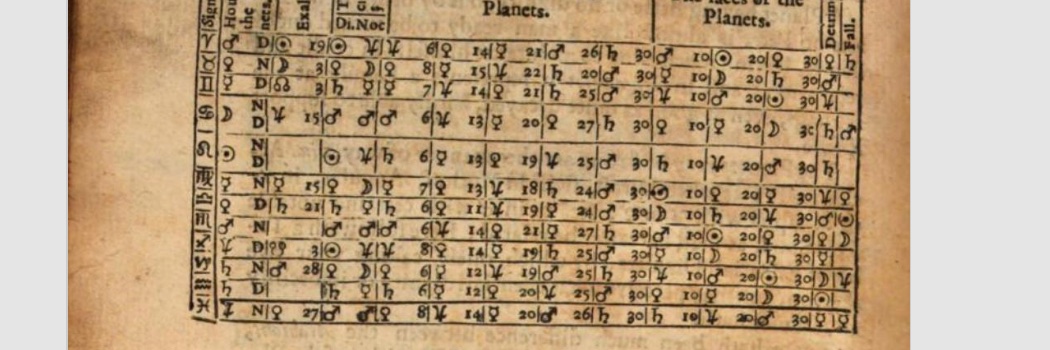 Sign Hou the ners. Exal Di. Noc Planets. the Planets. Detrim Fall.
♈ ♂ D ☉ 19 ☉ ♃ ♃ 6 ♀ 14 ☿ 21 ♂ 26 ♄ 30 ♂ 10 ☉ 20 ♀ 30 ♀ ♄
♉ ♀ N ☽ 3 ♀ ☽ ♀ 8 ☿ 15 ♃ 22 ♄ 20 ♂ 30 ☿ 10 ☽ 20 ♄ 30 ♂
♊ ☿ D ☊ 3 ♄ ☿ ☿ 7 ♃ 14 ♀ 21 ♄ 25 ♂ 30 ♃ 10 ♂ 20 ☉ 30 ♃
♋ ☽ N D ♃ 15 ♂ ♂ ♂ 6 ♃ 13 ☿ 20 ♀ 27 ♄ 30 ♀ 10 ☿ 20 ☽ 30 ♄ ♂
♌ ☉ N D ☉ ♃ ♄ 6 ☿ 13 ♀ 19 ♃ 25 ♂ 30 ♄ 10 ♃ 20 ♂ 30 ♄
♍ ☿ N ☿ 15 ♀ ☽ ☿ 7 ♀ 13 ♃ 18 ♄ 24 ♂ 30 ☉ 10 ♀ 20 ☿ 30 ♃ ♀
♎ ♀ D ♄ 21 ♄ ☿ ♄ 6 ♀ 11 ♃ 19 ☿ 24 ♂ 30 ☽ 10 ♄ 20 ♃ 30 ♂ ☉
♏ ♂ N ♂ ♂ ♂ 6 ♃ 14 ♀ 21 ☿ 27 ♄ 30 ♂ 10 ☉ 20 ♀ 30 ♀ ☽
♐ ♃ D ☋ 3 ☉ ♃ ♃ 8 ♀ 14 ☿ 19 ♄ 25 ♂ 30 ☿ 10 ☽ 20 ♄ 30 ☿
♑ ♄ N ♂ 28 ♀ ☽ ♀ 6 ☿ 12 ♃ 19 ♂ 25 ♄ 30 ♃ 10 ♂ 20 ☉ 30 ☽ ♃
♒ ♄ D ♄ ☿ ♄ 6 ☿ 12 ♀ 20 ♃ 25 ♂ 30 ♀ 10 ☿ 20 ☽ 30 ☉
♓ ♃ N ♀ 27 ♂ ♂ ♀ 8 ♃ 14 ☿ 20 ♂ 26 ♄ 30 ♄ 10 ♃ 20 ♂ 30 ☿ ☿